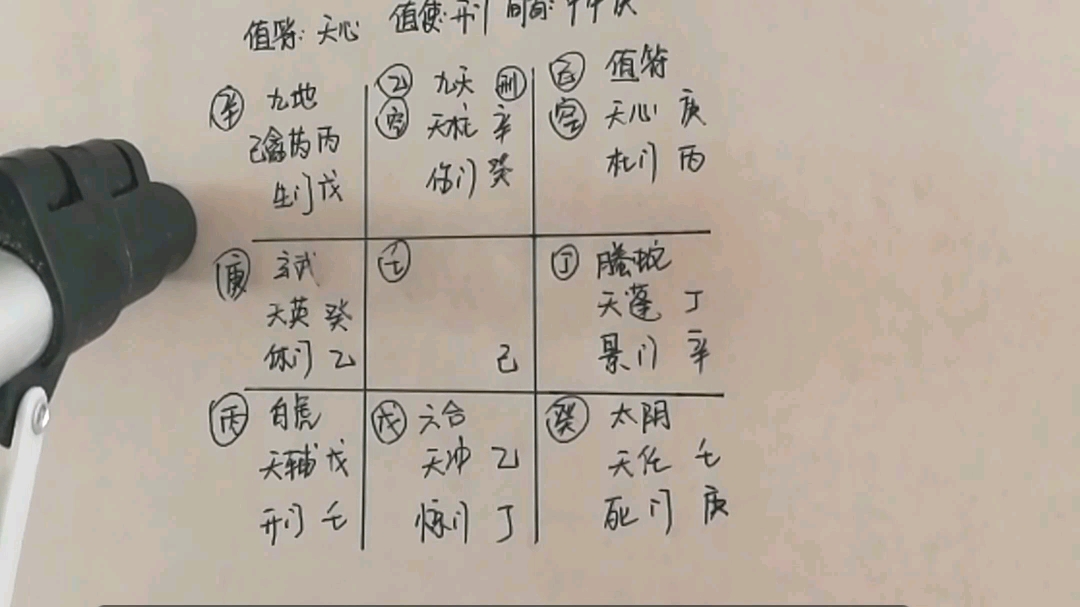 值符：天心 值使：开门 时间：
辛 九地
己禽芮丙
生门戊
乙 九天 刑
空 天柱 辛
伤门 癸
己 值符
空 天心 庚
杜门 丙
庚 玄武
天英 癸
休门 乙
壬
己
丁 腾蛇
天蓬 丁
景门 辛
丙 白虎
天辅 戊
开门 壬
戊 六合
天冲 乙
惊门 丁
癸 太阴
天任 壬
死门 庚